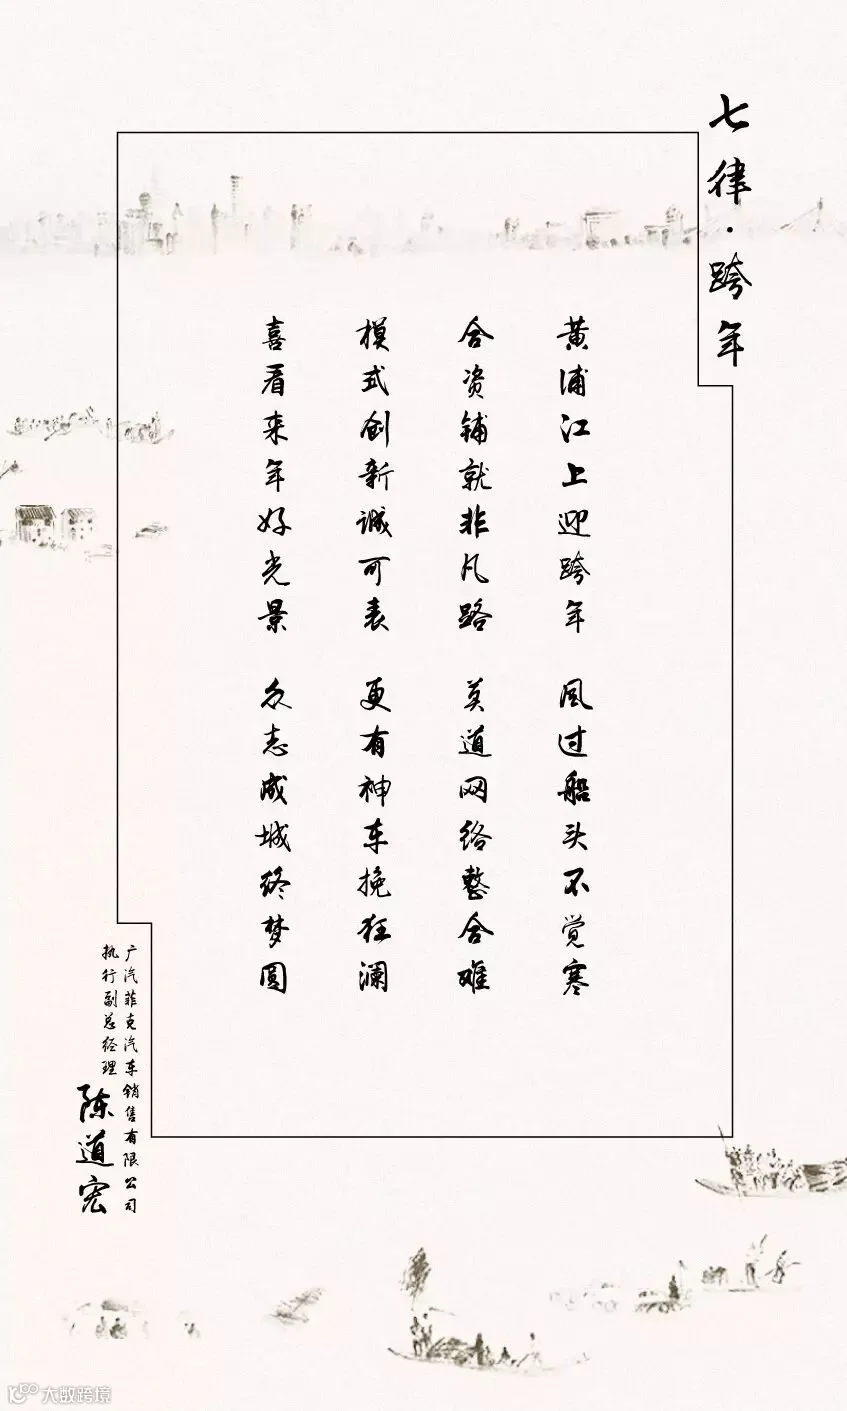 七律·跨年
黄浦江上迎跨年 风过船头不觉寒
合资铺就非凡路 莫道网络整合难
模式创新诚可表 更有神车挽狂澜
喜看来年好光景 众志成城终梦圆
广汽菲克汽车销售有限公司
执行副总经理
陈道宏
大数跨境